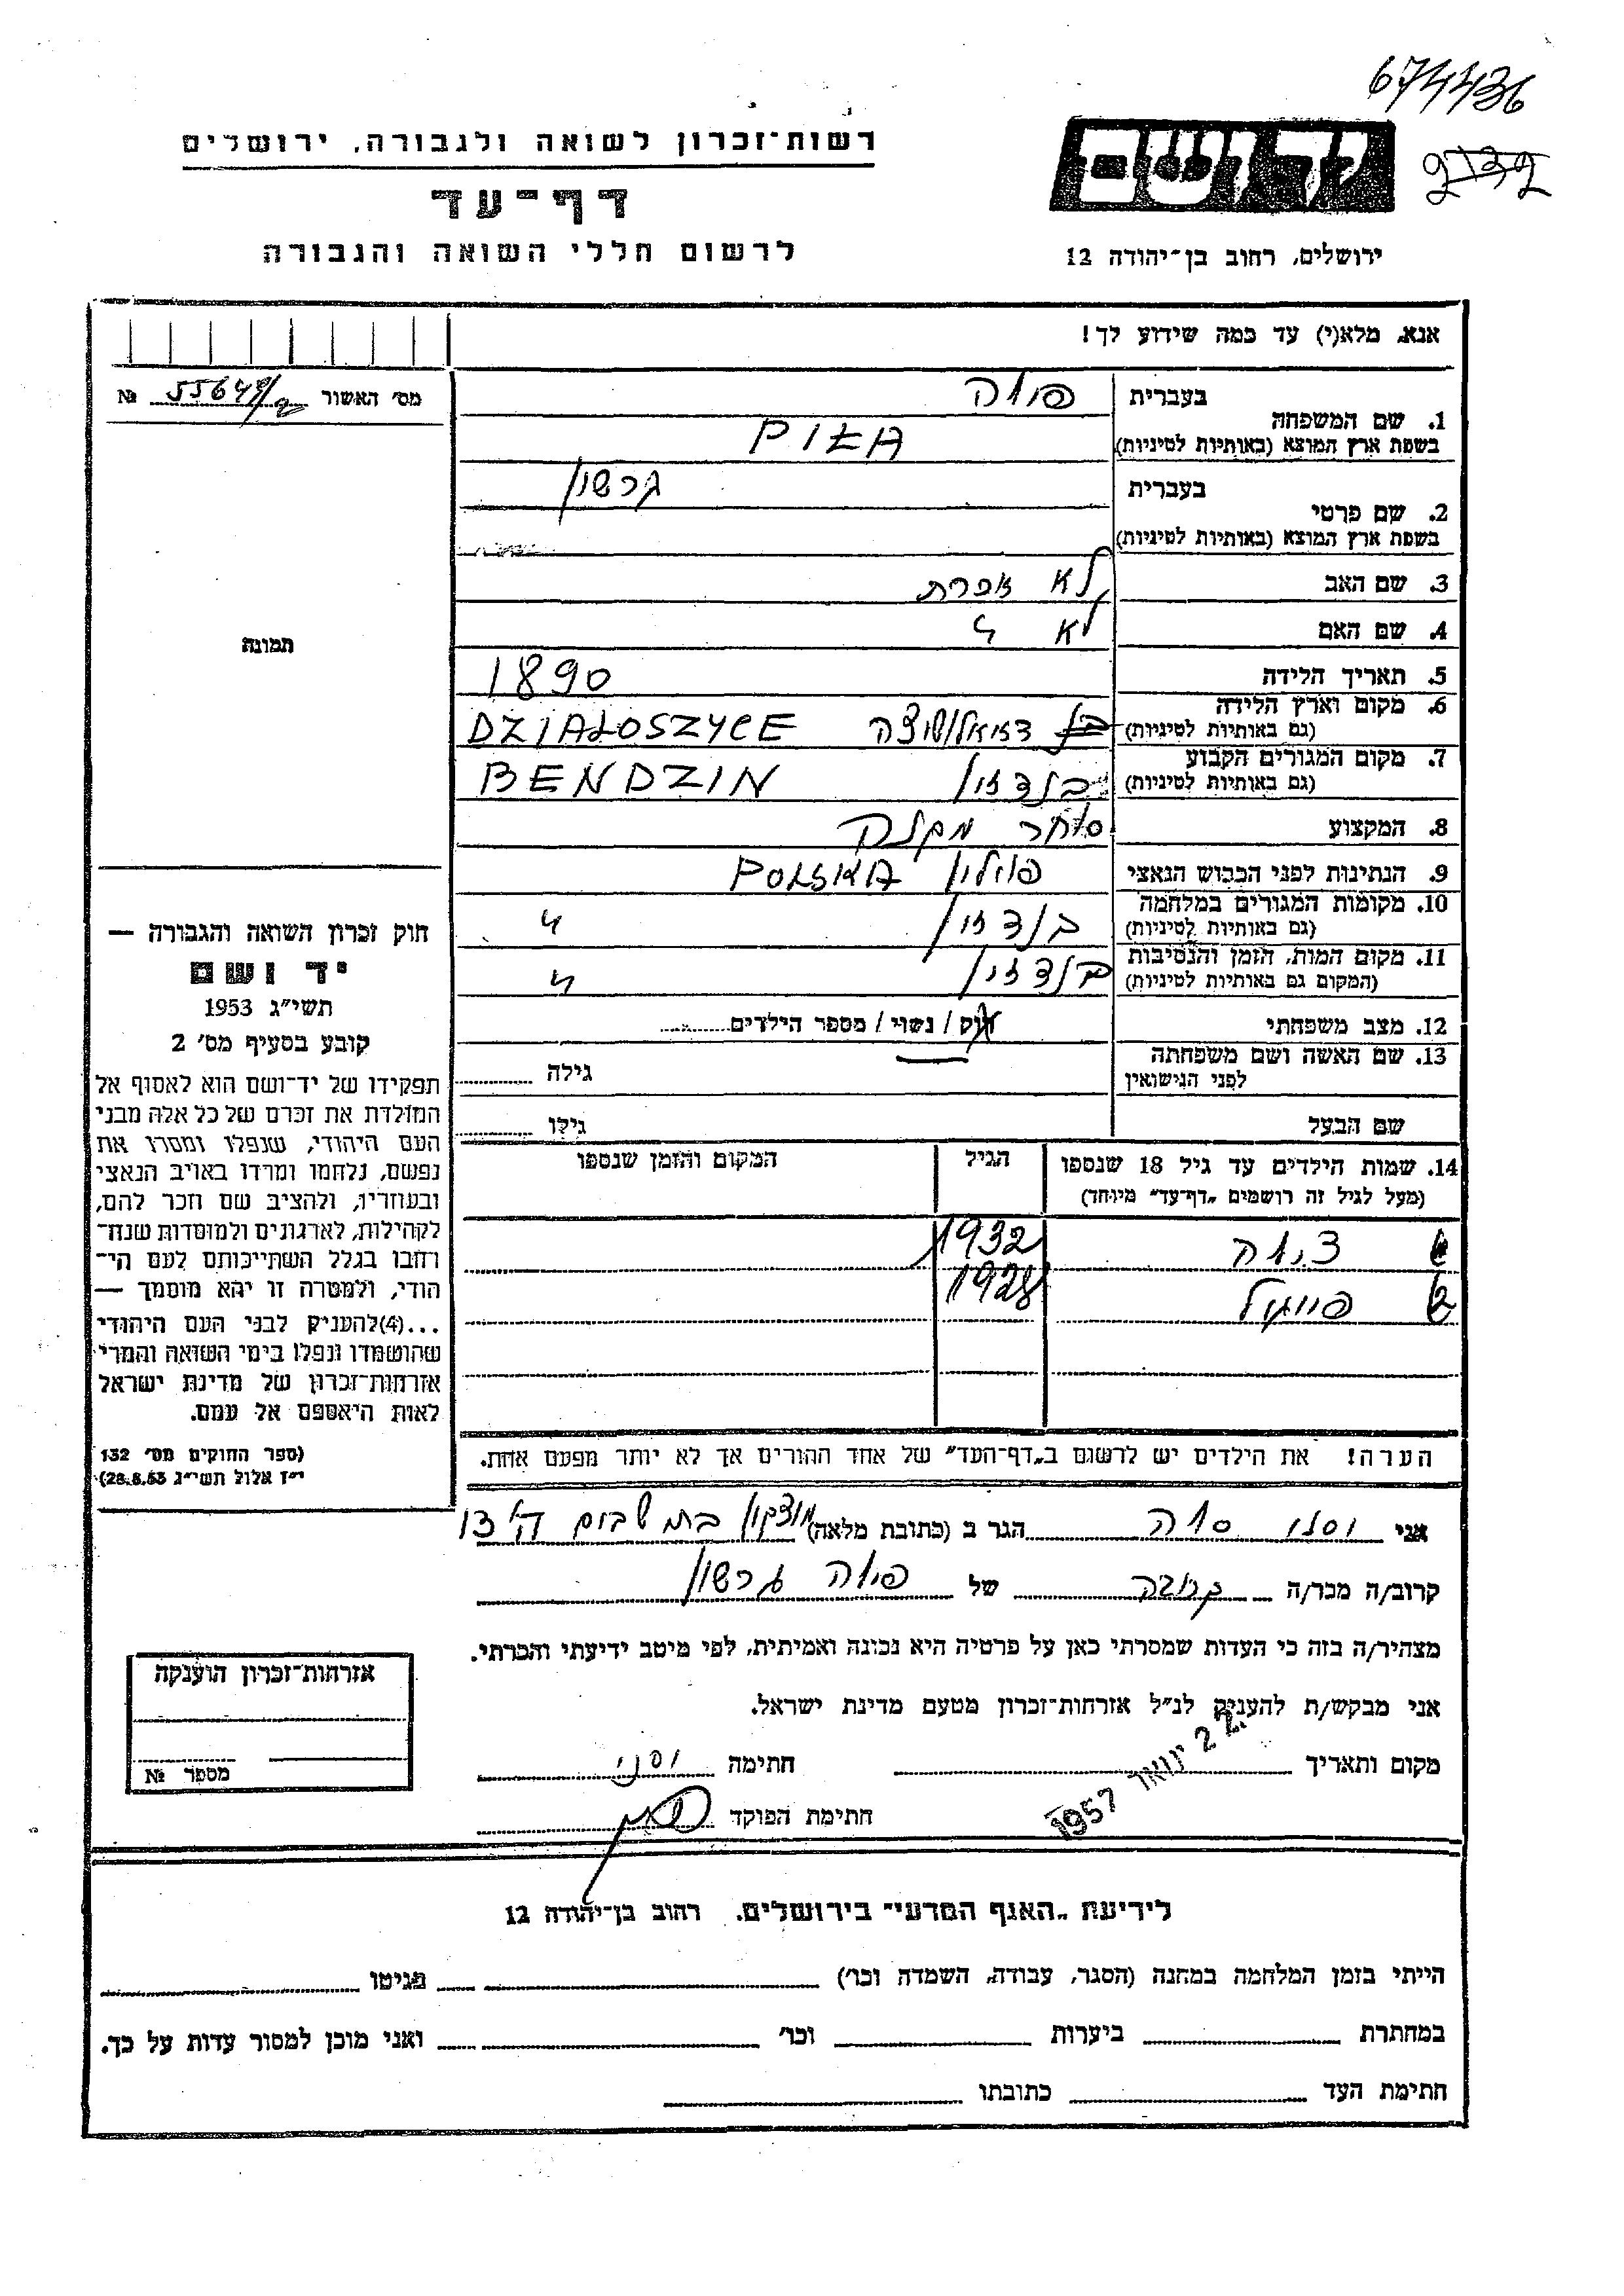 674436
2132
רשות־זכרון לשואה ולגבורה, ירושלים
דף־עד
לרשום חללי השואה והגבורה
יד ושם
ירושלים, רחוב בן־יהודה 12
אנא, מלא(י) עד כמה שידוע לך!
מס׳ האשור № 55649/2
1. שם המשפחה
בעברית פילה
בשפת ארץ המוצא (באותיות לטיניות) PIŁA
2. שם פרטי
בעברית גרשון
בשפת ארץ המוצא (באותיות לטיניות)
3. שם האב לא
4. שם האם לא "
5. תאריך הלידה 1890
6. מקום וארץ הלידה DZIAŁOSZYCE
(גם באותיות לטיניות)
7. מקום המגורים הקבוע בנדזין BENDZIN
(גם באותיות לטיניות)
8. המקצוע סוחר
9. הנתינות לפני הכבוש הנאצי פולין POLSKA
10. מקומות המגורים במלחמה בנדזין "
(גם באותיות לטיניות)
11. מקום המות, הזמן והנסיבות בנדזין "
(המקום גם באותיות לטיניות)
12. מצב משפחתי רוק / נשוי / מספר הילדים
13. שם האשה ושם משפחתה
לפני הנישואין
גילה
שם הבעל
גילו
14. שמות הילדים עד גיל 18 שנספו
(מעל לגיל זה רושמים „דף־עד” מיוחד)
הגיל
המקום והזמן שנספו
1932
2 1928
הערה! את הילדים יש לרשום ב„דף־העד” של אחד ההורים אך לא יותר מפעם אחת.
תמונה
חוק זכרון השואה והגבורה —
יד ושם
תשי״ג 1953
קובע בסעיף מס׳ 2
תפקידו של יד־ושם הוא לאסוף אל
המולדת את זכרם של כל אלה מבני
העם היהודי, שנפלו ומסרו את
נפשם, נלחמו ומרדו באויב הנאצי
ובעוזריו, ולהציב שם וזכר להם,
לקהילות, לארגונים ולמוסדות שנח־
רבו בגלל השתייכותם לעם הי־
הודי, ולמטרה זו יהא מוסמך —
...(4)להעניק לבני העם היהודי
שהושמדו ונפלו בימי השואה והמרי
אזרחות־זכרון של מדינת ישראל
לאות היאספם אל עמם.
(ספר החוקים מס׳ 132
י״ז אלול תשי״ג 28.8.53)
אני הגר ב (כתובת מלאה)
קרוב/ה מכר/ה קרובה של פילה גרשון
מצהיר/ה בזה כי העדות שמסרתי כאן על פרטיה היא נכונה ואמיתית, לפי מיטב ידיעתי והכרתי.
אני מבקש/ת להעניק לנ״ל אזרחות־זכרון מטעם מדינת ישראל.
מקום ותאריך 22 ינואר 1957 חתימה
חתימת הפוקד
אזרחות־זכרון הוענקה
מספר №
לידיעת „האגף המדעי” בירושלים, רחוב בן־יהודה 12
הייתי בזמן המלחמה במחנה (הסגר, עבודה, השמדה וכו׳) בגיטו
במחתרת ביערות וכו׳ ואני מוכן למסור עדות על כך.
חתימת העד כתובתו